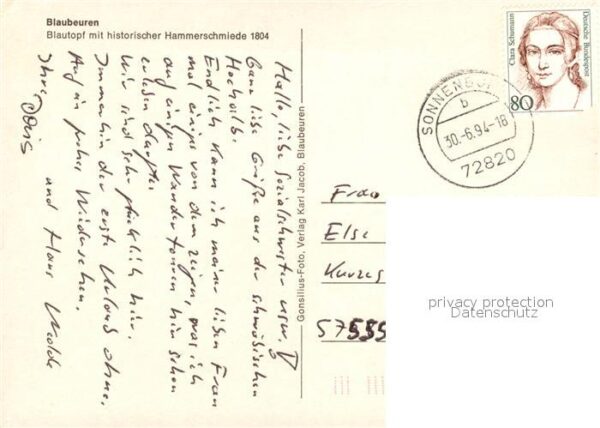 Blaubeuren
Blautopf mit historischer Hammerschmiede 1804
Hallo, liebe Sozialschwester usw.!
Ganz liebe Grüße aus der schwäbischen
Hochalb.
Endlich kann ich meiner lieben Frau
mal einiges von dem zeigen, was ich
auf einigen Wandertouren hier schon
erleben durfte.
Wir sind sehr glücklich hier.
Immerhin der erste Urlaub ohne.
Auf ein frohes Wiedersehen.
Ihre Doris und Hans
Gonsilius-Foto, Verlag Karl Jacob, Blaubeuren
Clara Schumann
Deutsche Bundespost
80
b
30.-6.94-18
72820
Frau
Else
57555
privacy protection
Datenschutz